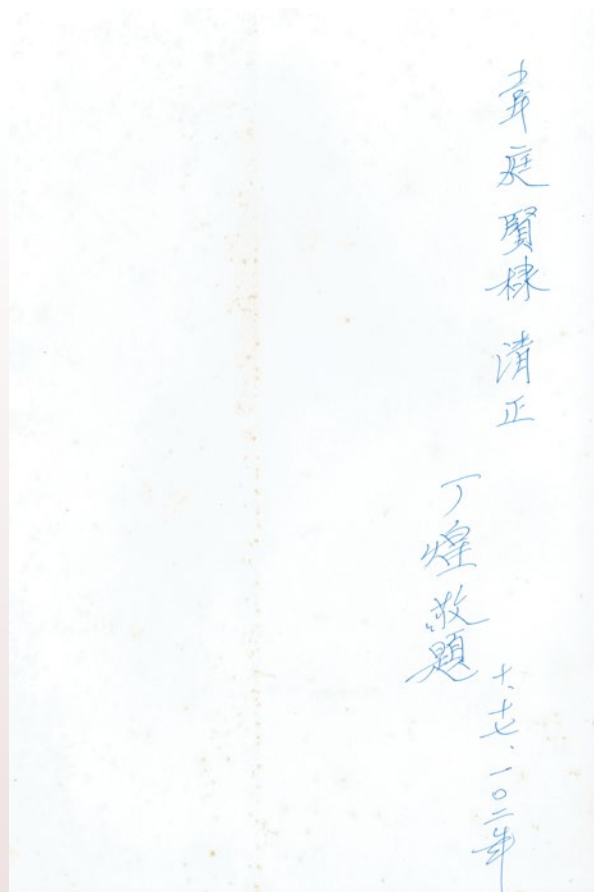 韋庭賢棣 清正
丁煌敬題
十、十七、一〇二年